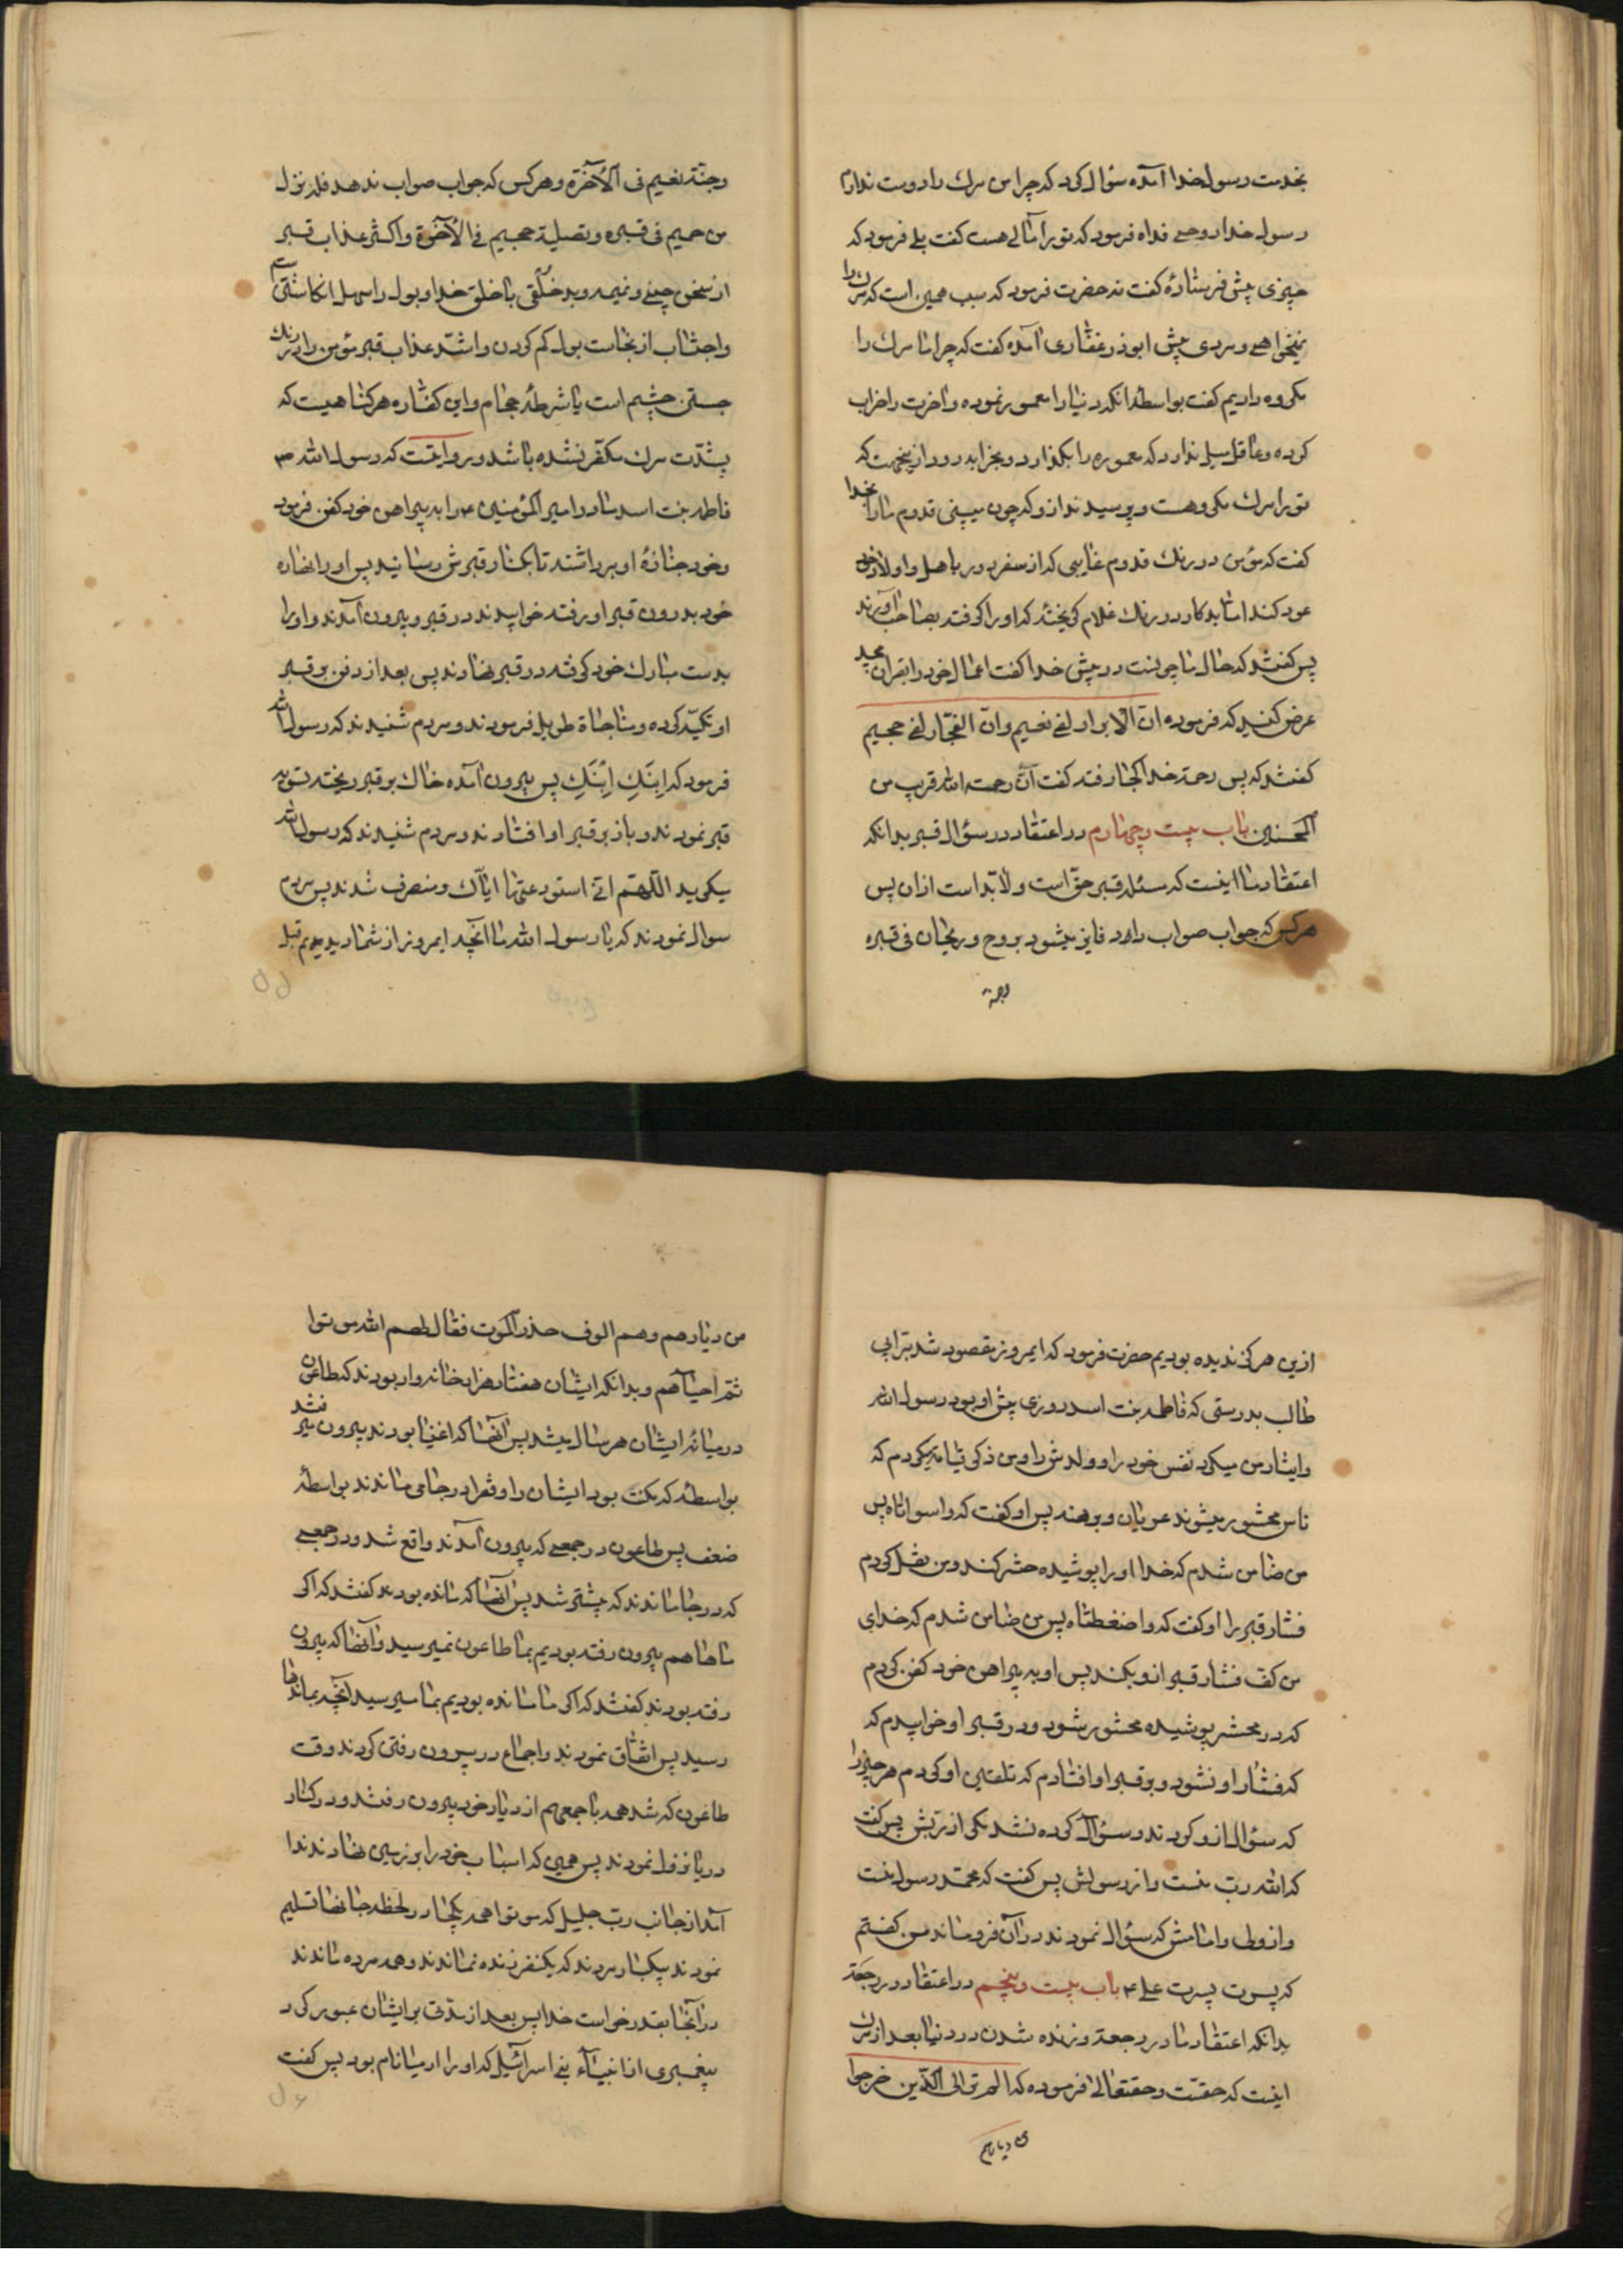 بخدمت رسول خدا آمده سؤال کرد که چرا من مرک را دوست ندارم
رسول خدا روحی فداه فرمود که تو را مالی هست کفت بلی فرمود که
چیزی پیش فرستادهٔ کفت نه حضرت فرمود که سبب همین است که مرک را
نمیخواهی و مردی پیش ابوذر غفاری آمده کفت که چرا ما مرک را
مکروه داریم کفت بواسطهٔ انکه دنیا را معمور نموده و اخرت را خراب
کرده و عاقل میل ندارد که معموره را بکذارد و بخرابه رود از ینجهت که
تو را مرک مکروهست و پرسیدند ازو که چون میبینی قدوم ما را بخدا
کفت که مؤمن در رنک قدوم غایبی که از سفر دور باهل و اولاد خود
عود کند اما بدکار در رنک غلام کریخته که او را کرفته بصاحب آورند
پس کفتند که حال ما چونست در پیش خدا کفت اعمال خود را بقران مجید
عرض کنید که فرموده ان الابرار لفی نعیم وان الفجّار لفی جحیم
کفتند که پس رحمة خدا کجا رفته کفت انّ رحمت الله قریب من
المحسنین باب بیست و چهارم در اعتقاد در سؤال قبر بدانکه
اعتقاد ما اینست که مسئلهٔ قبر حقّ است و لابدّ است ازان پس
هر کس که جواب صواب داد فایز میشود بروح و ریحان فی قبره
وجنة
وجنّة نعیم فی الآخرة و هر کس که جواب صواب ندهد فله نزل
من حمیم فی قبره و تصلیة جحیم فی الآخرة و اکثر عذاب قبر
از سخن چینی و نمیمه و بد خلقی با خلق خدا و بول را سهل انکاشتن است
و اجتناب از نجاست بول کم کردن و اشدّ عذاب قبر مؤمن را در رنک
جستن چشم است یا شرطهٔ حجام و این کفاره هر کناهیست که
بشدّت مرک مکفّر نشده باشد و روایتست که رسول الله ص
فاطمه بنت اسد مادر امیر المؤمنین ع را به پیراهن خود کفن فرمود
و خود جنازهٔ او برداشتند تا بکنار قبرش رسانید پس او را نهاده
خود بدرون قبر او رفته خوابیدند در قبر و بیرون آمدند و او را
بدست مبارک خود کرفته در قبر نهادند پس بعد از دفن بر قبر
او تکیه کرده و مناجاة طویل فرمودند و مردم شنیدند که رسول الله
فرمود که اِبنَکِ اِبنَکِ پس بیرون آمده خاک بر قبر ریخته تسویه
قبر نمودند و باز بر قبر او افتادند و مردم شنیدند که رسول الله
میکوید اللّهم انّی استودعتها ایّاک و منصرف شدند پس مردم
سوال نمودند که یا رسول الله ما آنچه امروز از شما دیدیم قبل
از ین هرکز ندیده بودیم حضرت فرمود که امروز مقصود شد بّر ابی
طالب بدرستی که فاطمه بنت اسد روزی پیش او بود رسول الله
و ایثار من میکرد نفس خود را و ولدش را و من ذکر قیامة میکردم که
ناس محشور میشوند عریان و برهنه پس او کفت که واسواتاه پس
من ضامن شدم که خدا او را پوشیده حشر کند و من نقل کردم
فشار قبر را او کفت که واضغطتاه پس من ضامن شدم که خدای
من کف فشار قبر ازو بکند پس او به پیراهن خود کفن کردم
که در محشر پوشیده محشور شود و در قبر او خوابیدم که
که فشار او نشود و بر قبر او افتادم که تلقین او کردم هر چیز را
که سؤال ازو کردند و سؤال کرده شد مکر از ربّش پس کفت
که الله ربّ منست و از رسولش پس کفت که محمّد رسول منست
و از ولی و امامش که سؤال نمودند در آن فروماند من کفتم
که پسرت پسرت علی ع باب بیست و پنجم در اعتقاد در رجعة
بدانکه اعتقاد ما در رجعة و زنده شدن در دنیا بعد از مرک
اینست که حقّست و حقتعالی فرموده که الم تر الی الّذین خرجوا
من دیارهم
من دیارهم و هم الوف حذر الموت فقال لهم الله موتوا
ثمّ احیاهم و بدانکه ایشان هفتاد هزار خانه وار بودند که طاعون
در میانهٔ ایشان هر سال میشد پس آنها که اغنیا بودند بیرون میرفتند
بواسطهٔ که مکنت بود ایشان را و فقرا در جا می ماندند بواسطهٔ
ضعف پس طاعون در جمعی که بیرون آمدند واقع شد و در جمعی
که در جا ماندند که بیشتر شد پس آنها که مانده بودند کفتند که اکر
ما ها هم بیرون رفته بودیم بما طاعون نمیرسید و آنها که بیرون
رفته بودند کفتند که اکر ما مانده بودیم بما میرسید آنچه بماندها
رسید پس اتفاق نمودند و اجماع در بیرون رفتن کردند وقت
طاعون که شد همه با جمعهم از دیار خود بیرون رفتند و در کنار
دریا نزول نمودند پس همین که اسباب خود را بر زمین نهادند ندا
آمد از جانب ربّ جلیل که موتوا همه یکجا در لحظه جانها تسلیم
نمودند بیکبار مردند که یکنفر زنده نماندند و همه مرده ماندند
در آنجا بقدر خواست خدا پس بعد از مدّتی بر ایشان عبور کرد
پیغمبری از انبیاء بنی اسرائیل که او را ارمیا نام بود پس کفت